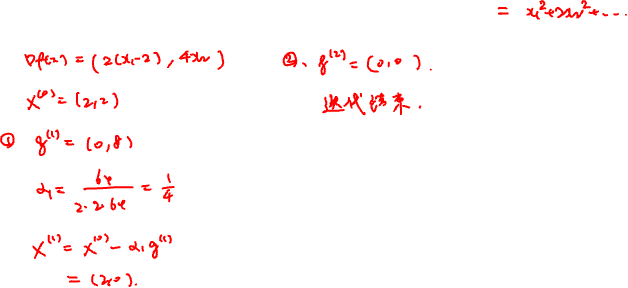 = x₁²+2x₂²+...
∇f(x) = (2(x₁-2), 4x₂)
x⁽⁰⁾ = (2,2)
① g⁽¹⁾ = (0,8)
α₁ = 64 / 2·2·64 = 1/4
x⁽¹⁾ = x⁽⁰⁾ - α₁g⁽¹⁾
= (2,0).
②、g⁽²⁾ = (0,0).
迭代结束.